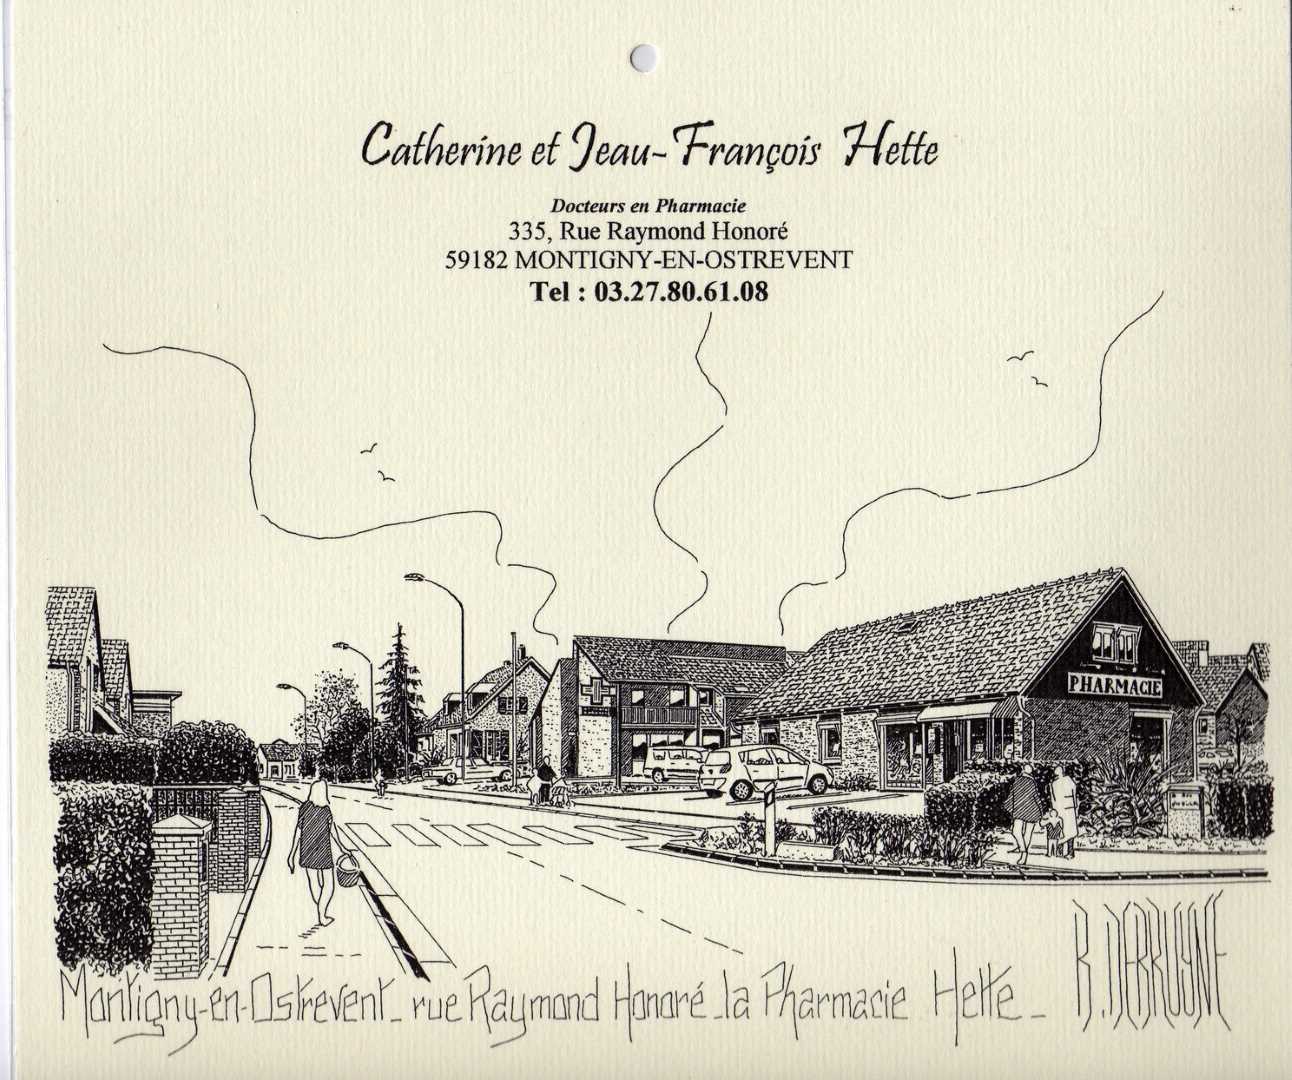 Catherine et Jean-François Hette
Docteurs en Pharmacie
335, Rue Raymond Honoré
59182 MONTIGNY-EN-OSTREVENT
Tel : 03.27.80.61.08
PHARMACIE
Montigny-en-Ostrevent_ rue Raymond Honoré _la Pharmacie Hette_
B.DEBRUYNE